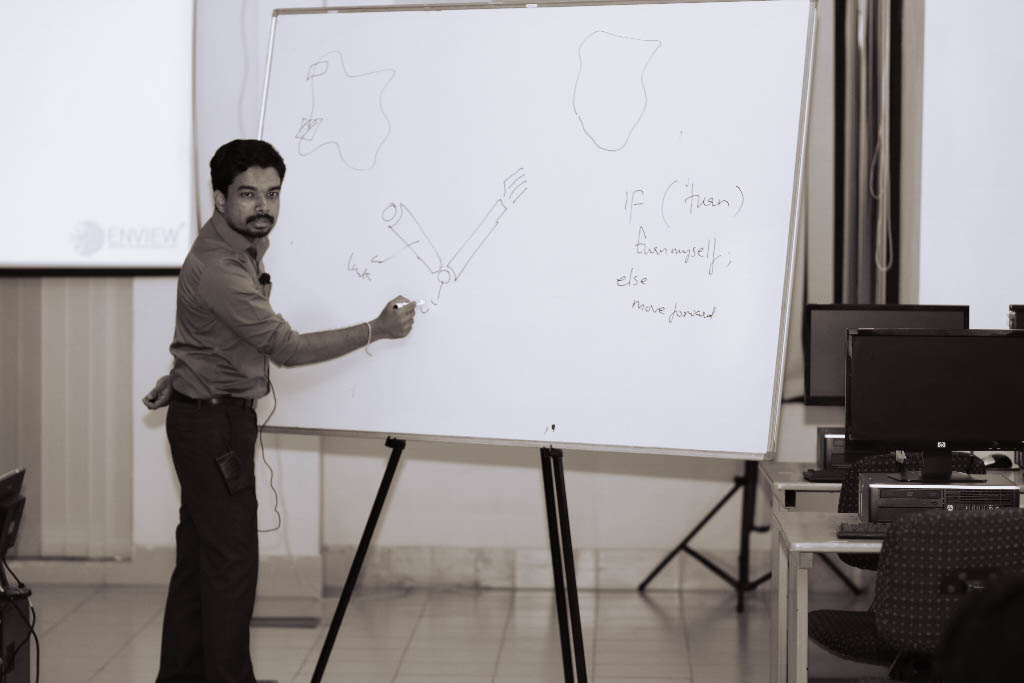 ENVIEW
IF ( turn )
turn myself;
else
move forward
hp
hp